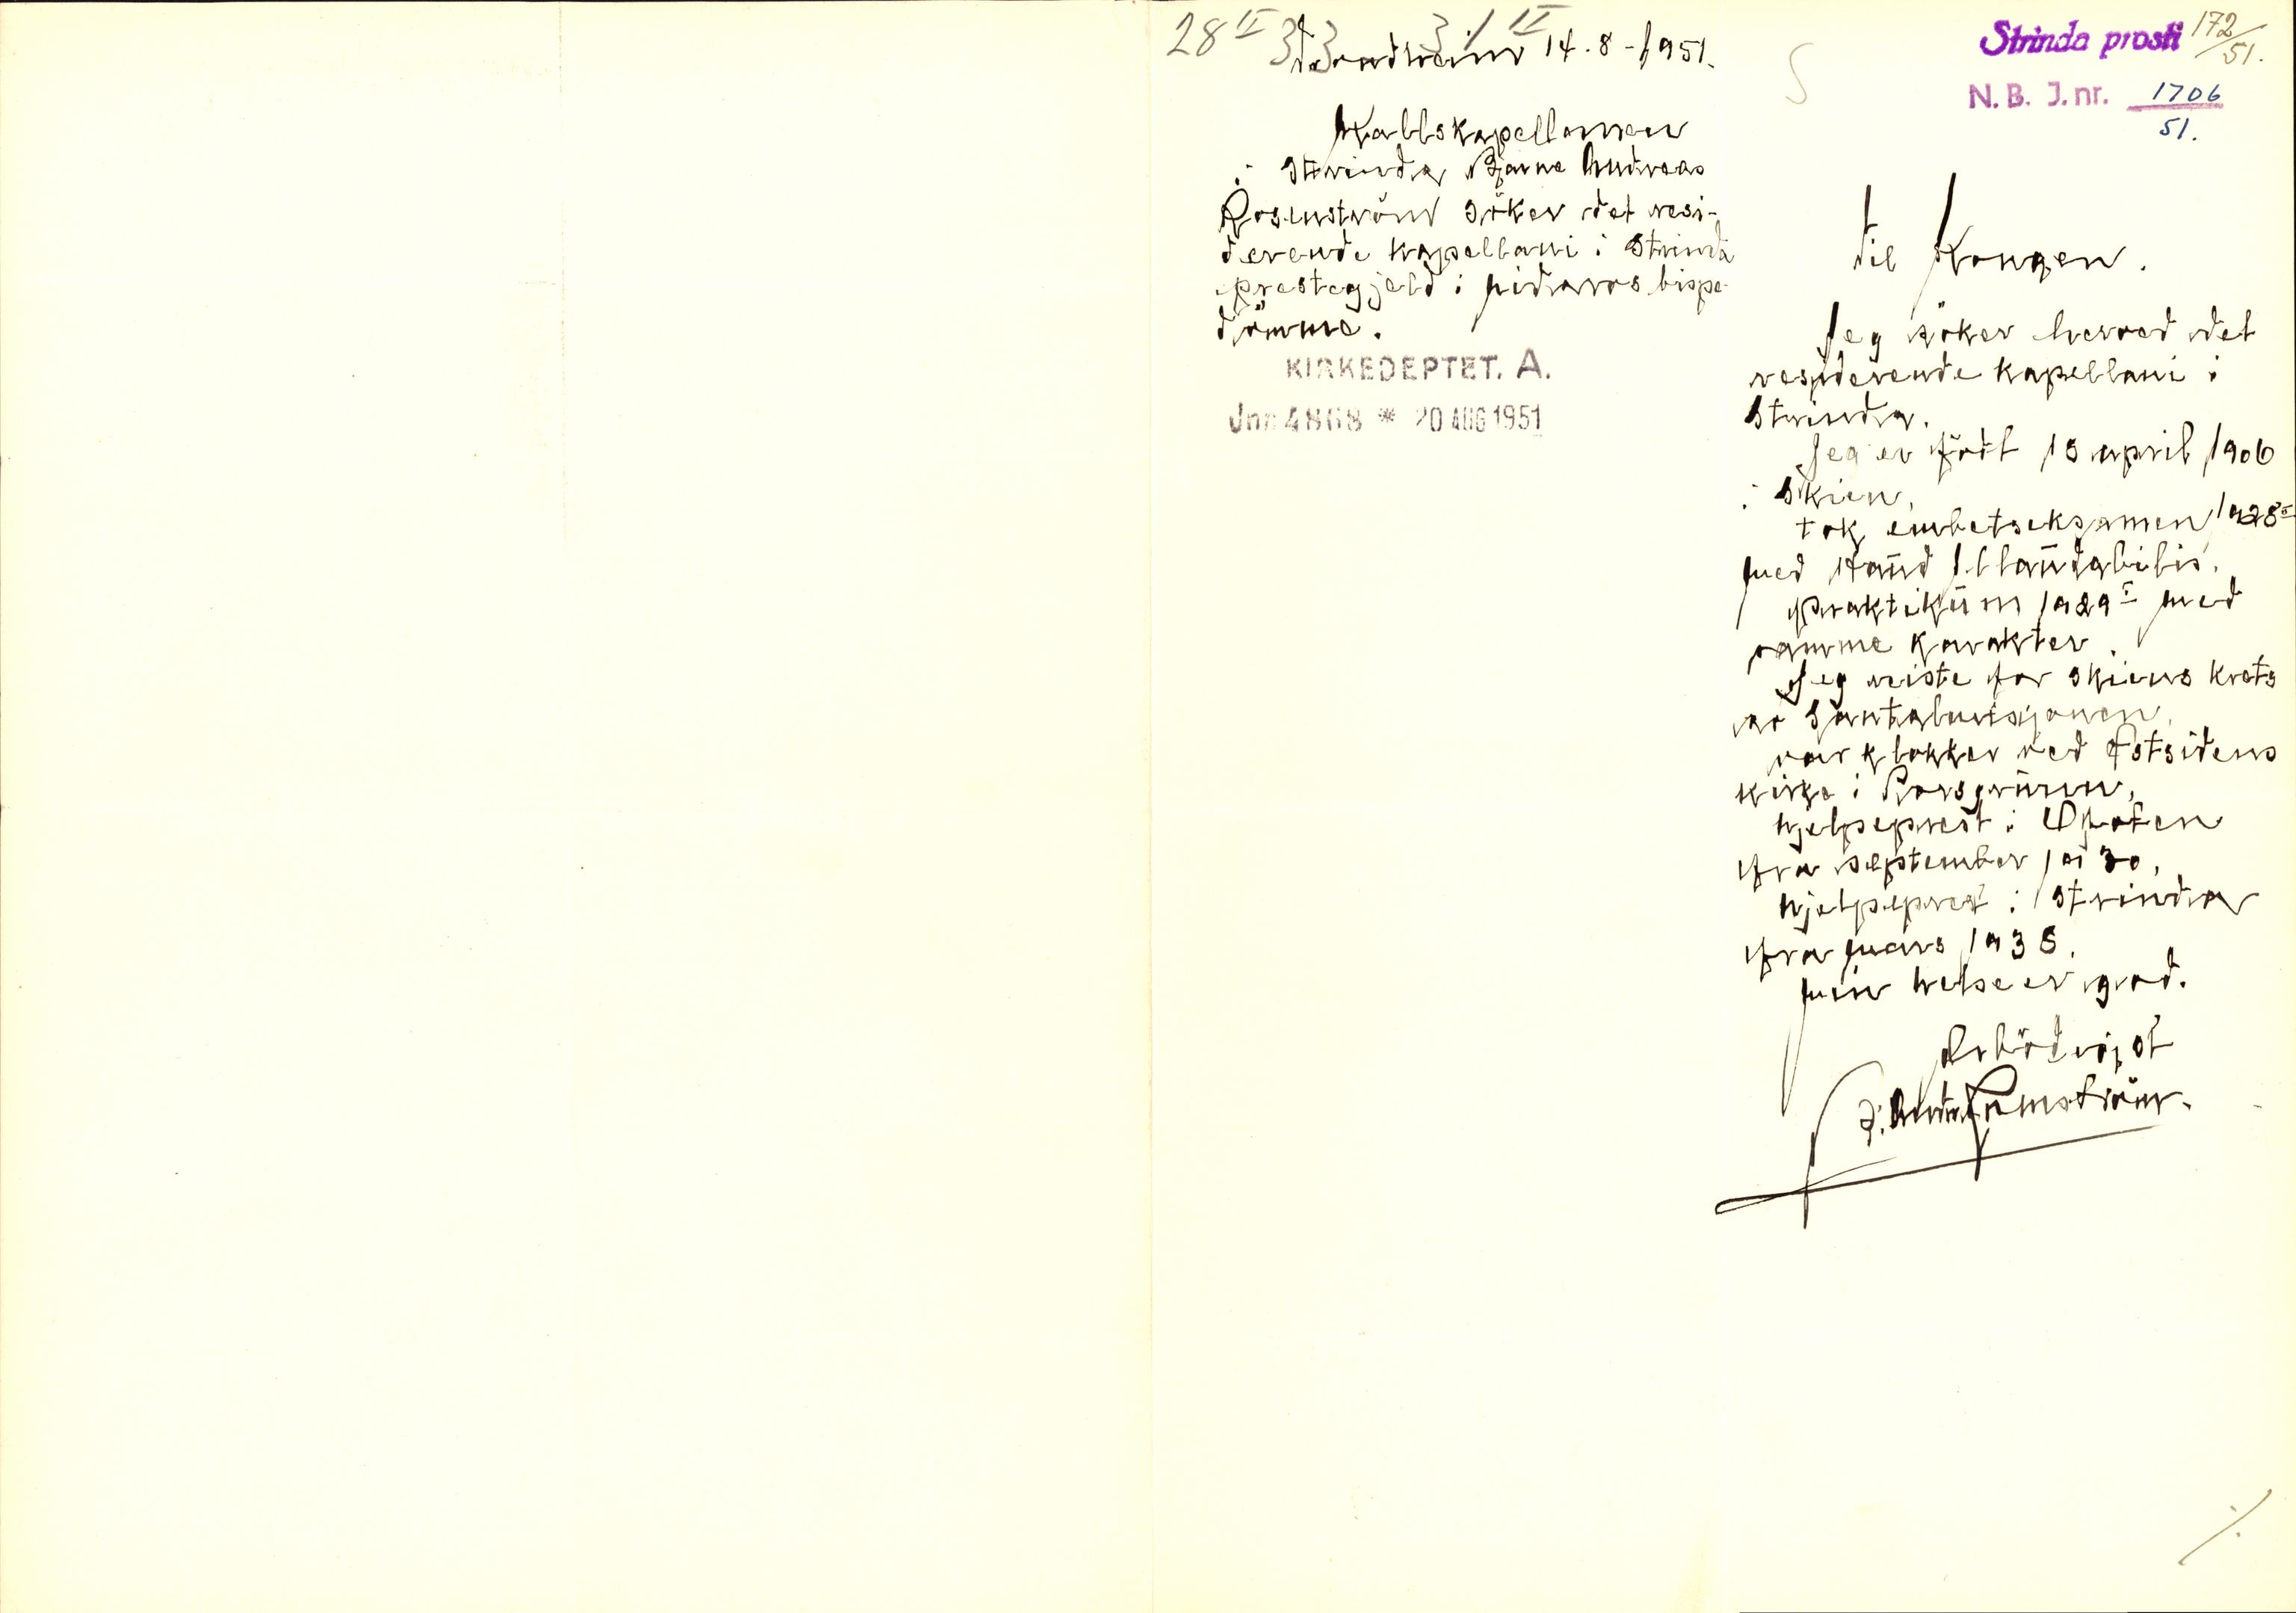 28 II 33 31 II
Trondheim 14.8-1951.
Kallskapellanen
i Strinda Bjarne Andreas
Rosenström söker det resi-
derende kapellani i Strinda
prestegjeld i Nidaros bispe-
dömme.
KIRKEDEPTET. A.
Jnr. 4868 * 20 AUG 1951
Strinda prosti 172/51.
N. B. J. nr. 1706
51.
Til Kongen.
Jeg söker herved det
residerende kapellani i
Strinda.
Jeg er födt 18 april 1906
i Skien,
tok embetseksamen 1928 II
med Haud Illaudabilis.
Praktikum 1929 I med
samme karakter.
Jeg reiste for Skiens krets
av Santalmisjonen,
var klokker ved Østsidens
kirke i Porsgrunn,
hjelpeprest i Ofoten
fra september 1930,
hjelpeprest i Strinda
fra mars 1938.
Min helse er god.
Ærbödigst
B. Andr. Rosenström.